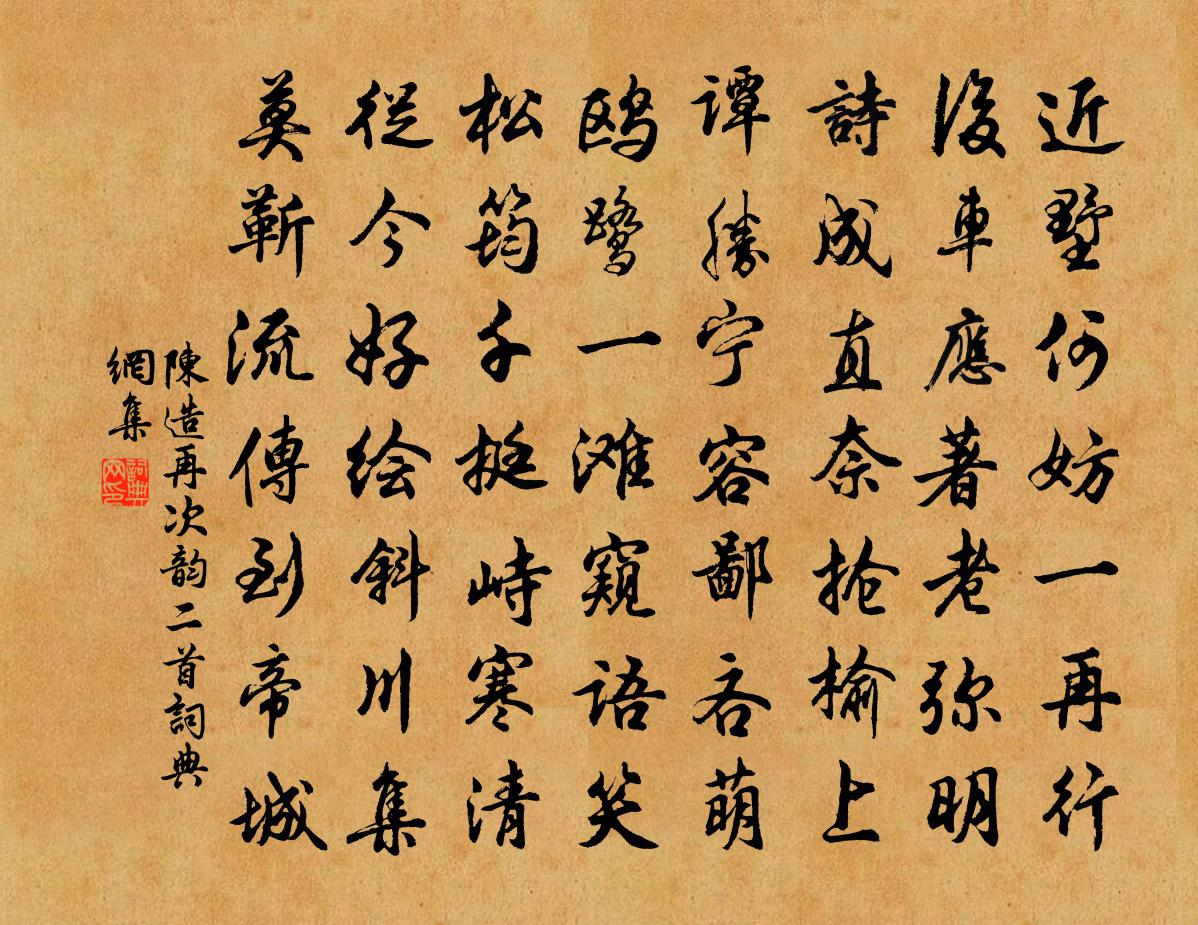 近墅何妨一再行
後車應著老弥明
詩成直奈抢榆上
譚勝宁容鄙吝萌
鸥鹭一滩窥语笑
松筠千挺峙寒清
從今好绘斜川集
莫靳流傳到帝城
陳造再次韵二首詞典
網集
詞典
网印